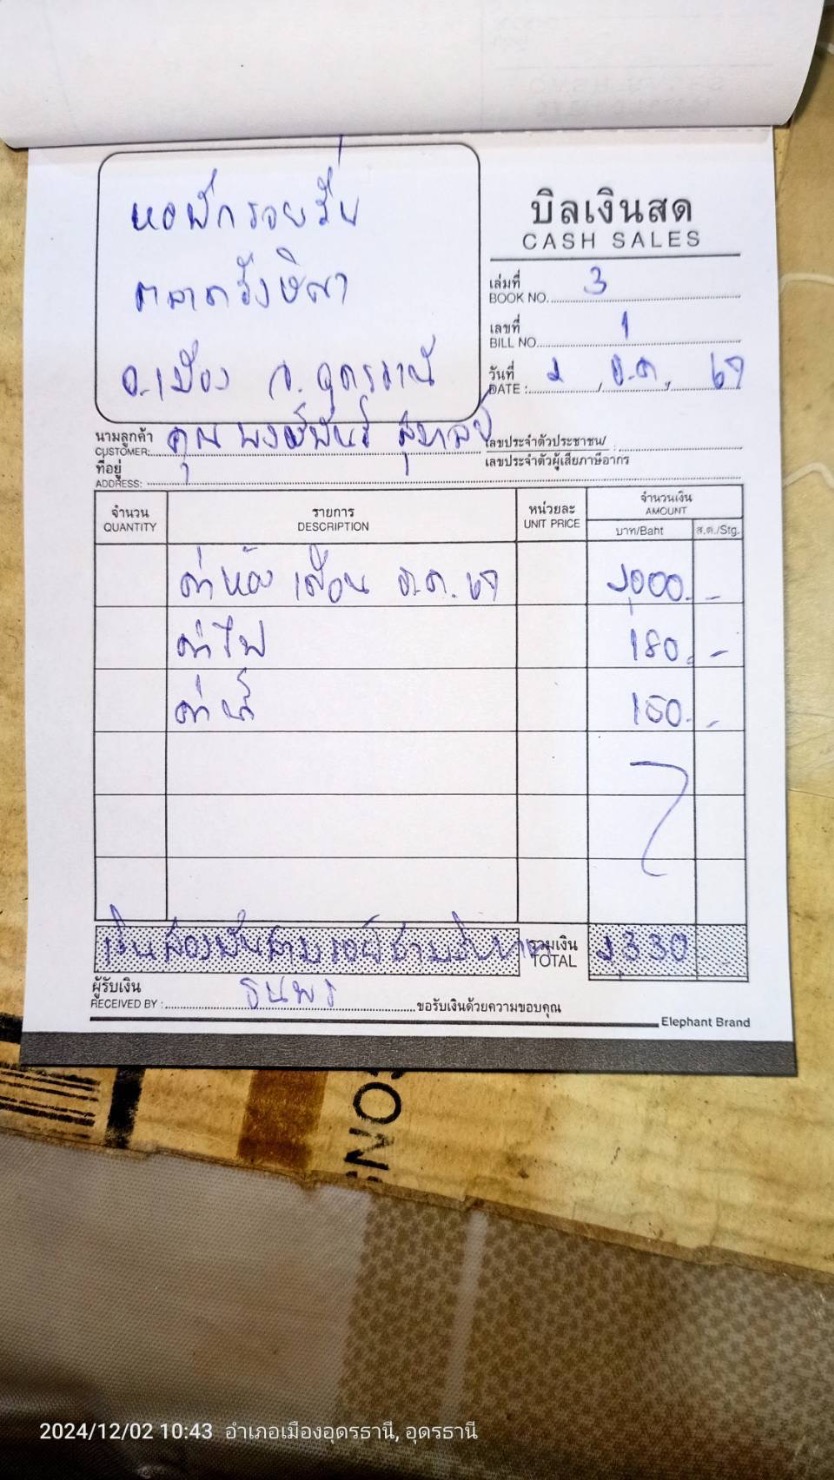 หอพักรวยรื่น
ตลาดรังษิณา
อ.เมือง จ.อุดรธานี
บิลเงินสด
CASH SALES
เล่มที่ BOOK NO. 3
เลขที่ BILL NO. 1
วันที่ DATE : 2 , ธ.ค, 67
นามลูกค้า CUSTOMER: คุณ พงษ์พันธ์
เลขประจำตัวประชาชน/
เลขประจำตัวผู้เสียภาษีอากร
ที่อยู่ ADDRESS:
จำนวน QUANTITY รายการ DESCRIPTION หน่วยละ UNIT PRICE จำนวนเงิน AMOUNT
บาท/Baht ส.ต./Stg.
ค่าห้อง เดือน ธ.ค. 67 2,000.-
ค่าไฟ 180.-
ค่าน้ำ 150.-
เงินสองพันสามร้อยสามสิบบาท รวมเงิน TOTAL 2,330
ผู้รับเงิน RECEIVED BY : ธนพร ขอรับเงินด้วยความขอบคุณ
Elephant Brand
2024/12/02 10:43 อำเภอเมืองอุดรธานี, อุดรธานี